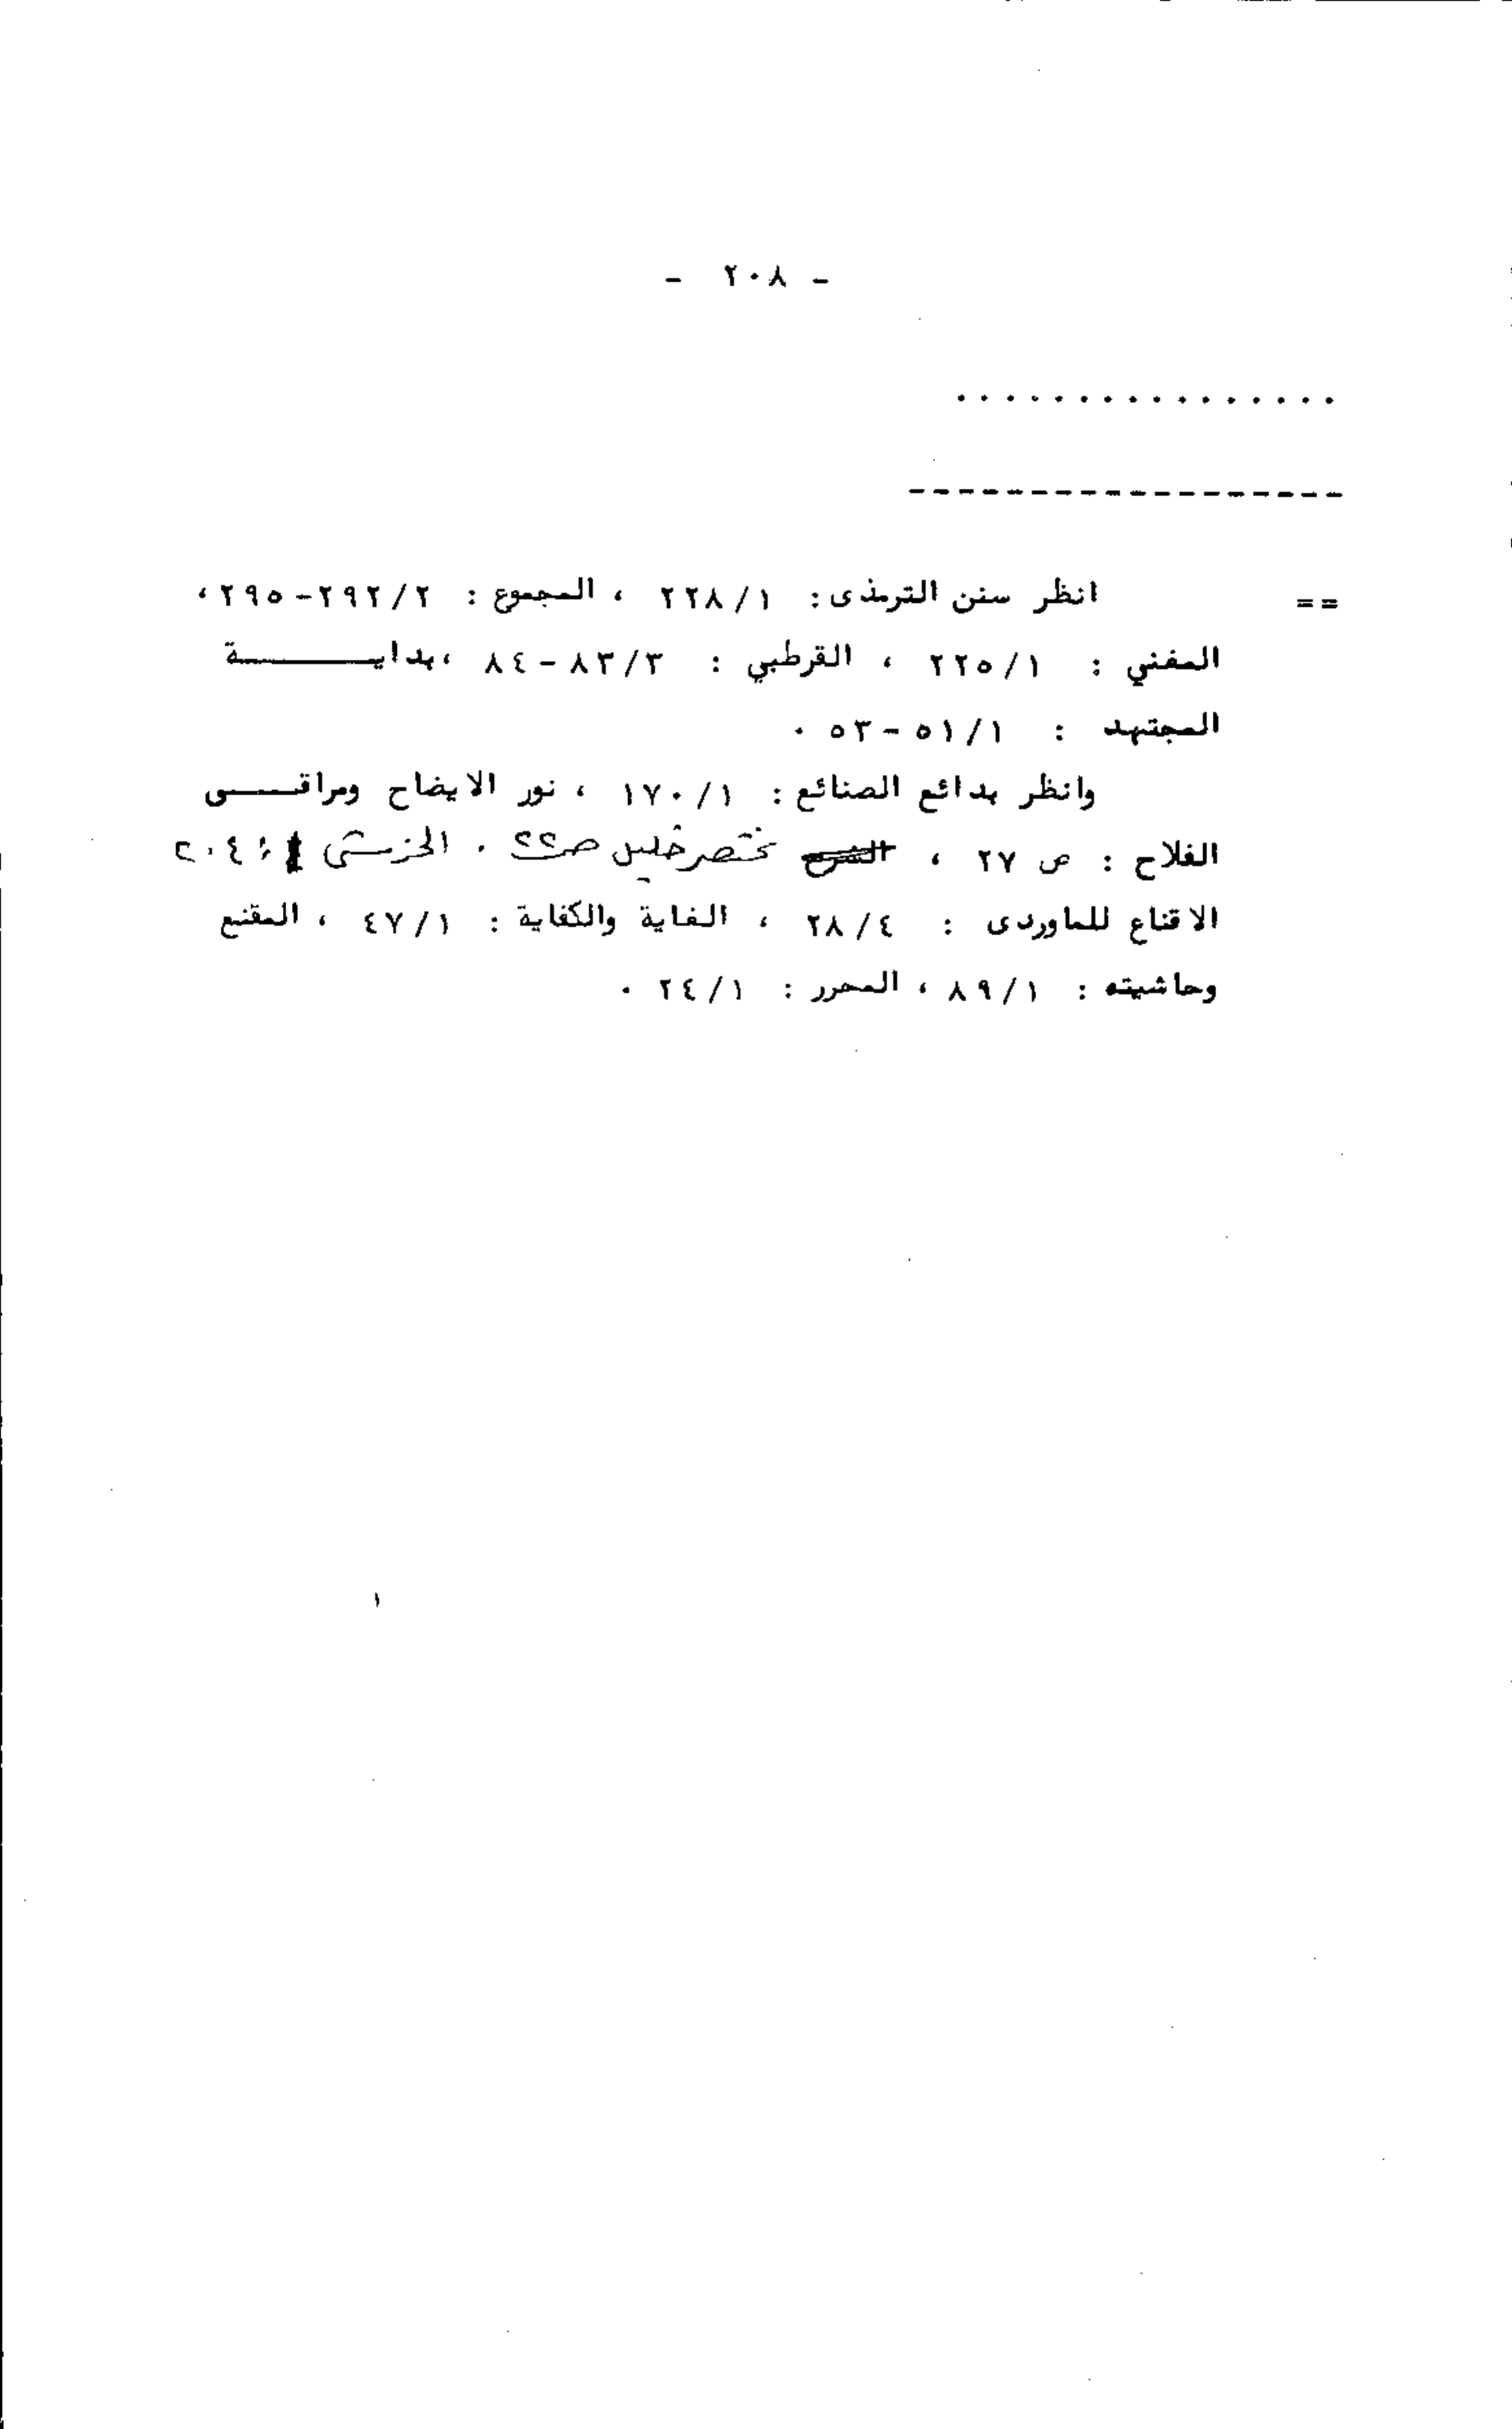 - ٢٠٨ -
................
------------------
== انظر سنن الترمذى : ٢٢٨/١ ، المجموع : ٢٩٢/٢-٢٩٥ ،
المغني : ٢٢٥/١ ، القرطبي : ٨٣/٣-٨٤ ،بدايـــــــة
المجتهد : ٥١/١-٥٣ .
وانظر بدائع الصنائع : ١٧٠/١ ، نور الايضاح ومراقـــى
الفلاح : ص ٢٧ ، مختصر خليل ص٢٢ . الخرشي ٢٠٤
الاقناع للماوردى : ٢٨/٤ ، الغاية والكفاية : ٤٧/١ ، المقنع
وحاشيته : ٨٩/١ ، المحرر : ٢٤/١ .